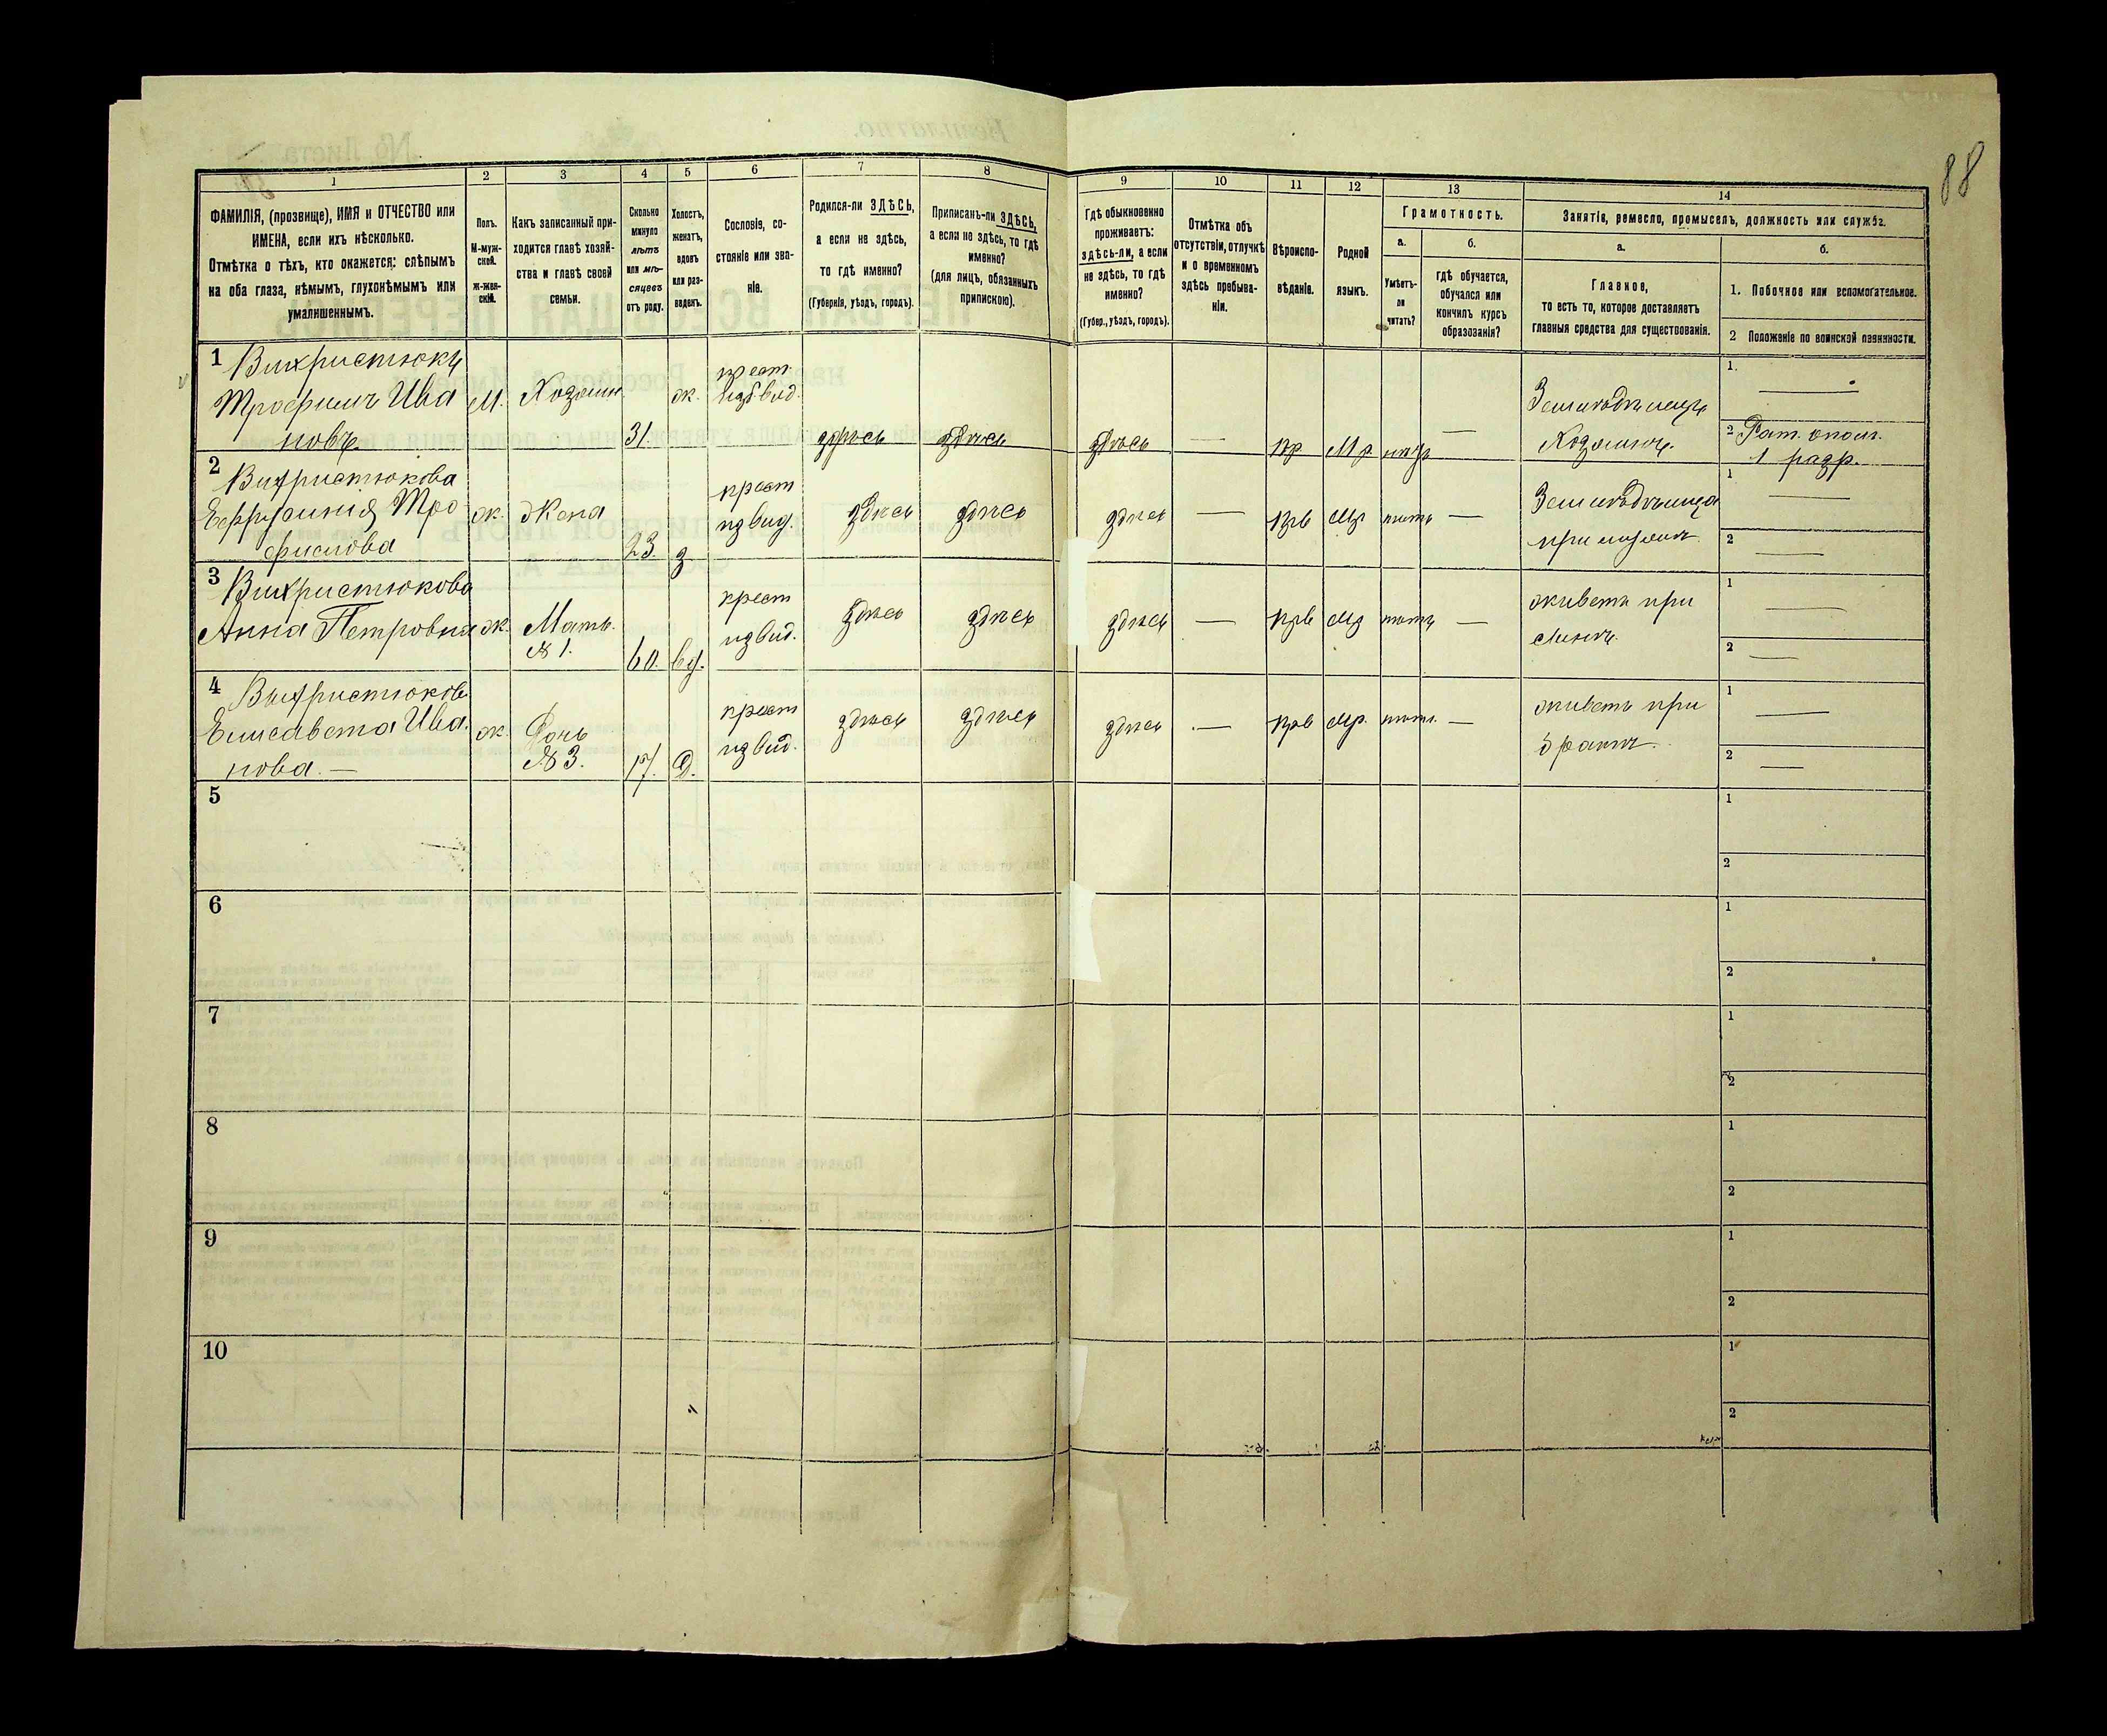 88
1
2
3
4
5
6
7
8
9
10
11
12
13
14
ФАМИЛІЯ, (прозвище), ИМЯ и ОТЧЕСТВО или
ИМЕНА, если ихъ нѣсколько.
Отмѣтка о тѣхъ, кто окажется: слѣпымъ
на оба глаза, нѣмымъ, глухонѣмымъ или
умалишеннымъ.
Полъ.
М-муж-
ской.
ж-жен-
скій.
Какъ записанный при-
ходится главѣ хозяй-
ства и главѣ своей
семьи.
Сколько
минуло
лѣтъ
или мѣ-
сяцевъ
отъ роду.
Холостъ,
женатъ,
вдовъ
или раз-
веденъ.
Сословіе, со-
стояніе или зва-
ніе.
Родился-ли ЗДѢСЬ,
а если не здѣсь,
то гдѣ именно?
(Губернія, уѣздъ, городъ).
Приписанъ-ли ЗДѢСЬ,
а если не здѣсь, то гдѣ
именно?
(для лицъ, обязанныхъ
припискою).
Гдѣ обыкновенно
проживаетъ:
здѣсь-ли, а если
не здѣсь, то гдѣ
именно?
(Губер., уѣздъ, городъ).
Отмѣтка объ
отсутствіи, отлучкѣ
и о временномъ
здѣсь пребыва-
ніи.
Вѣроиспо-
вѣданіе.
Родной
языкъ.
Грамотность.
а.
Умѣетъ-
ли
читать?
б.
гдѣ обучается,
обучался или
кончилъ курсъ
образованія?
Занятіе, ремесло, промыселъ, должность или служба.
а.
Главное,
то есть то, которое доставляетъ
главныя средства для существованія.
б.
1. Побочное или вспомогательное.
2 Положеніе по воинской повинности.
1 Вихристюкъ
Трофимъ Ива
новъ.
М. Хозяинъ 31. ж. крест. здѣсь здѣсь здѣсь — пр М.р. нѣтъ —
Земледѣлецъ
Хозяинъ.
1. —
2 Рат. опол.
1 разр.
2 Вихристюкова
Евфросинія Тро
фимова
ж. Жена 23. з
крест
из вид. здѣсь здѣсь здѣсь — прв мр нѣтъ —
Земледѣлица
при мужѣ.
1 —
2 —
3 Вихристюкова
Анна Петровна ж. Мать
№ 1. 60. вд.
крест
из вид. здѣсь здѣсь здѣсь — прв мр нѣтъ —
живетъ при
сынѣ.
1 —
2 —
4 Вихристюкова
Елисавета Ива.
нова. —
ж. Дочь
№ 3. 17. Д.
крест
из вид. здѣсь здѣсь здѣсь — прв мр. нѣтъ. —
живетъ при
братѣ.
1 —
2 —
5
1
2
6
1
2
7
1
2
8
1
2
9
1
2
10
1
2